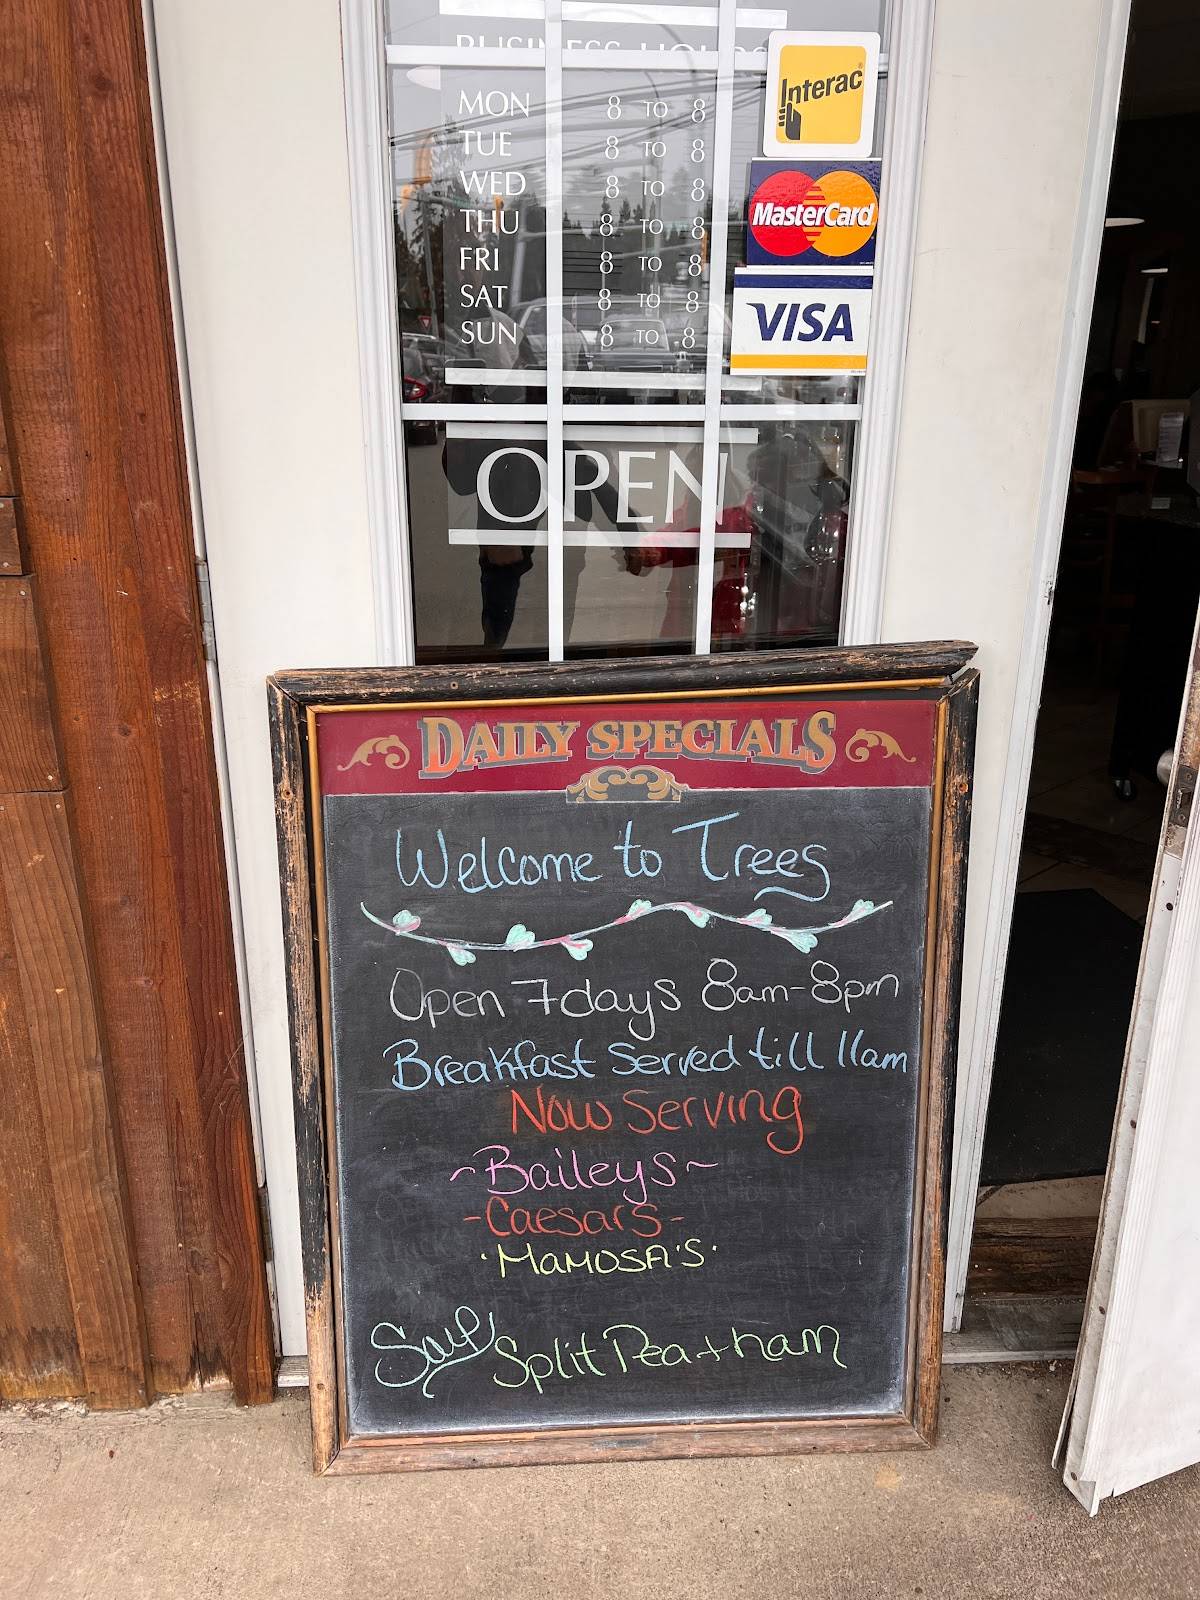 BUSINESS HOURS
MON 8 TO 8
TUE 8 TO 8
WED 8 TO 8
THU 8 TO 8
FRI 8 TO 8
SAT 8 TO 8
SUN 8 TO 8
Interac
MasterCard
VISA
OPEN
DAILY SPECIALS
Welcome to Trees
Open 7days 8am-8pm
Breakfast Served till 11am
Now Serving
~Baileys~
-Caesars-
·Mamosa's·
Soup Split Pea + ham